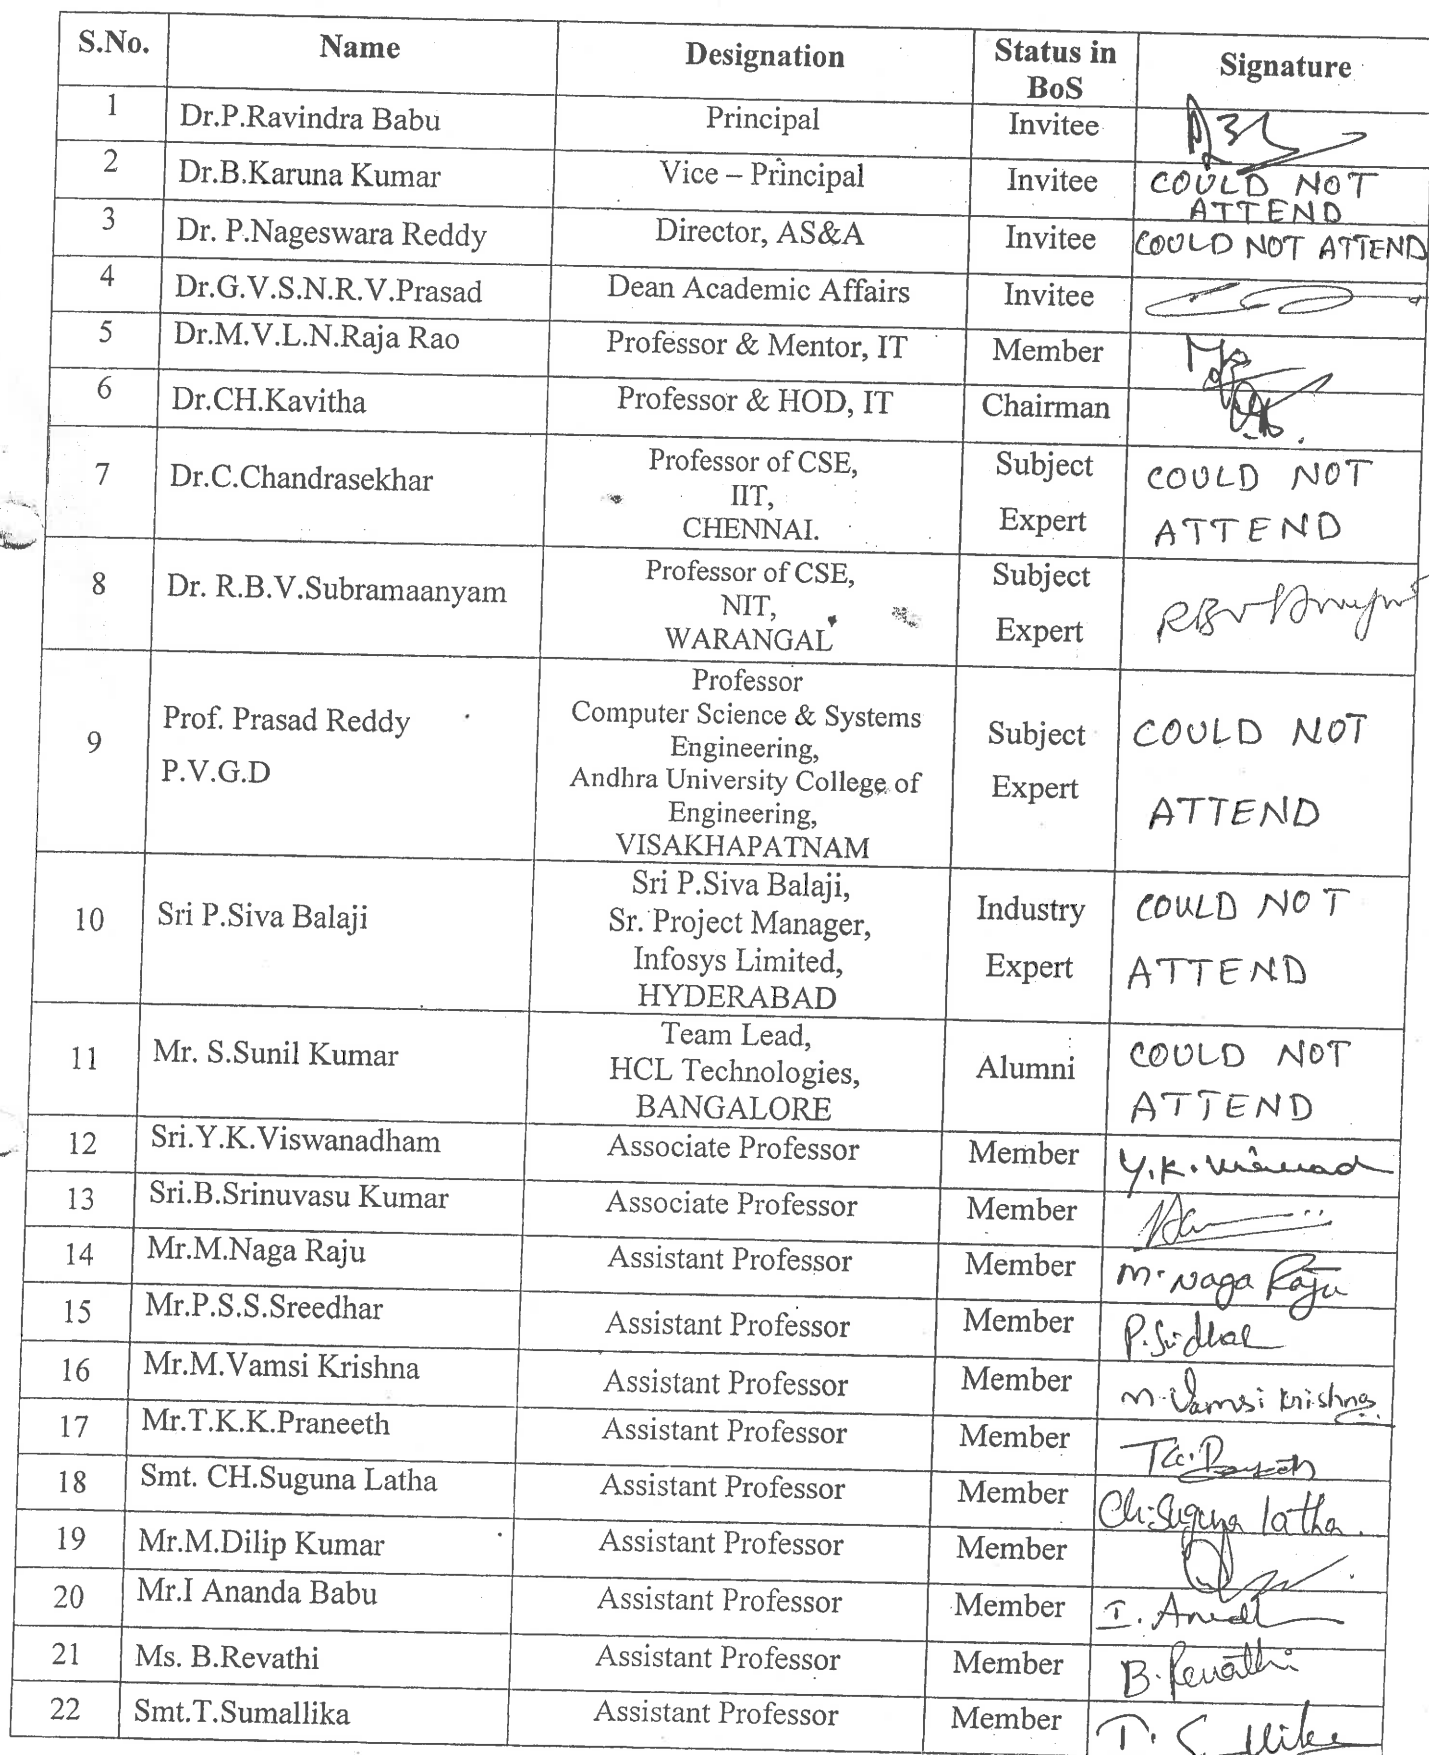 S.No. Name Designation Status in BoS Signature
1 Dr.P.Ravindra Babu Principal Invitee
2 Dr.B.Karuna Kumar Vice – Principal Invitee COULD NOT
ATTEND
3 Dr. P.Nageswara Reddy Director, AS&A Invitee COULD NOT ATTEND
4 Dr.G.V.S.N.R.V.Prasad Dean Academic Affairs Invitee
5 Dr.M.V.L.N.Raja Rao Professor & Mentor, IT Member
6 Dr.CH.Kavitha Professor & HOD, IT Chairman
7 Dr.C.Chandrasekhar Professor of CSE,
IIT,
CHENNAI.
Subject
Expert
COULD NOT
ATTEND
8 Dr. R.B.V.Subramaanyam Professor of CSE,
NIT,
WARANGAL
Subject
Expert
9 Prof. Prasad Reddy
P.V.G.D
Professor
Computer Science & Systems
Engineering,
Andhra University College of
Engineering,
VISAKHAPATNAM
Subject
Expert
COULD NOT
ATTEND
10 Sri P.Siva Balaji Sri P.Siva Balaji,
Sr. Project Manager,
Infosys Limited,
HYDERABAD
Industry
Expert
COULD NOT
ATTEND
11 Mr. S.Sunil Kumar Team Lead,
HCL Technologies,
BANGALORE
Alumni
COULD NOT
ATTEND
12 Sri.Y.K.Viswanadham Associate Professor Member
13 Sri.B.Srinuvasu Kumar Associate Professor Member
14 Mr.M.Naga Raju Assistant Professor Member M. Naga Raju
15 Mr.P.S.S.Sreedhar Assistant Professor Member
16 Mr.M.Vamsi Krishna Assistant Professor Member M. Vamsi Krishna
17 Mr.T.K.K.Praneeth Assistant Professor Member
18 Smt. CH.Suguna Latha Assistant Professor Member Ch. Suguna latha.
19 Mr.M.Dilip Kumar Assistant Professor Member
20 Mr.I Ananda Babu Assistant Professor Member
21 Ms. B.Revathi Assistant Professor Member B. Revathi
22 Smt.T.Sumallika Assistant Professor Member